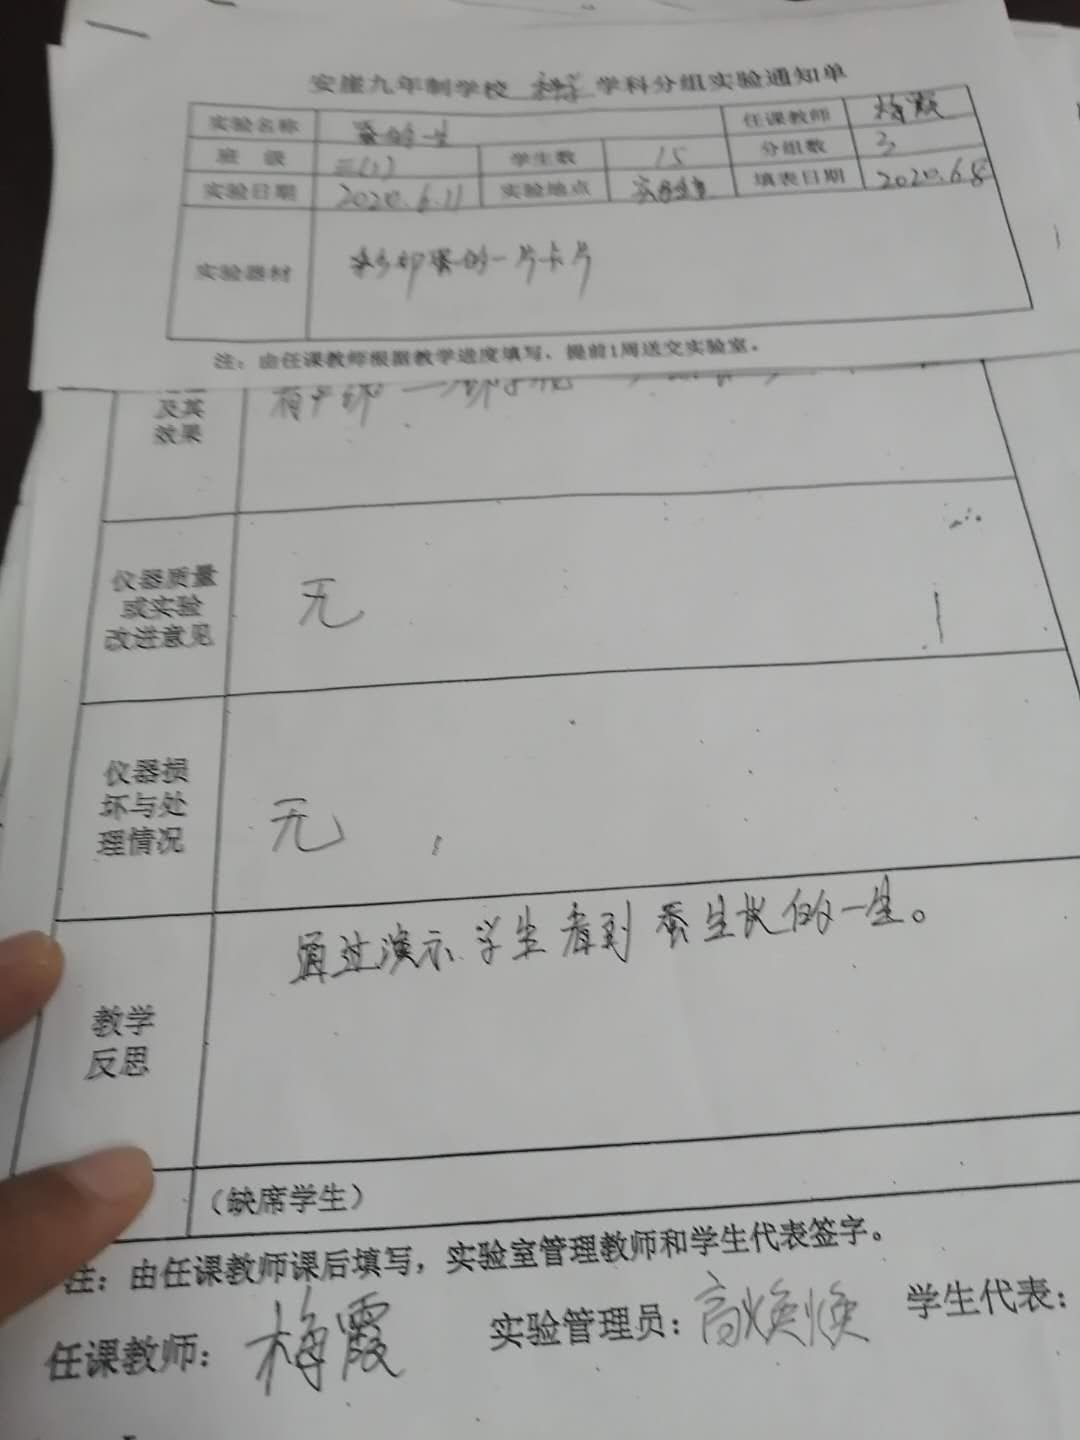 安崖九年制学校 科学 学科分组实验通知单
实验名称 蚕的一生 任课教师 梅霞
班 级 三(1) 学生数 15 分组数 3
实验日期 2020.6.11 实验地点 实验室 填表日期 2020.6.8
实验器材 的一片卡片
注：由任课教师根据教学进度填写，提前1周送交实验室。
及其
效果
仪器质量
或实验
改进意见
无
仪器损
坏与处
理情况
无
教学
反思
通过演示、学生看到蚕生长的一生。
（缺席学生）
注：由任课教师课后填写，实验室管理教师和学生代表签字。
任课教师：梅霞 实验管理员：高焕焕 学生代表：